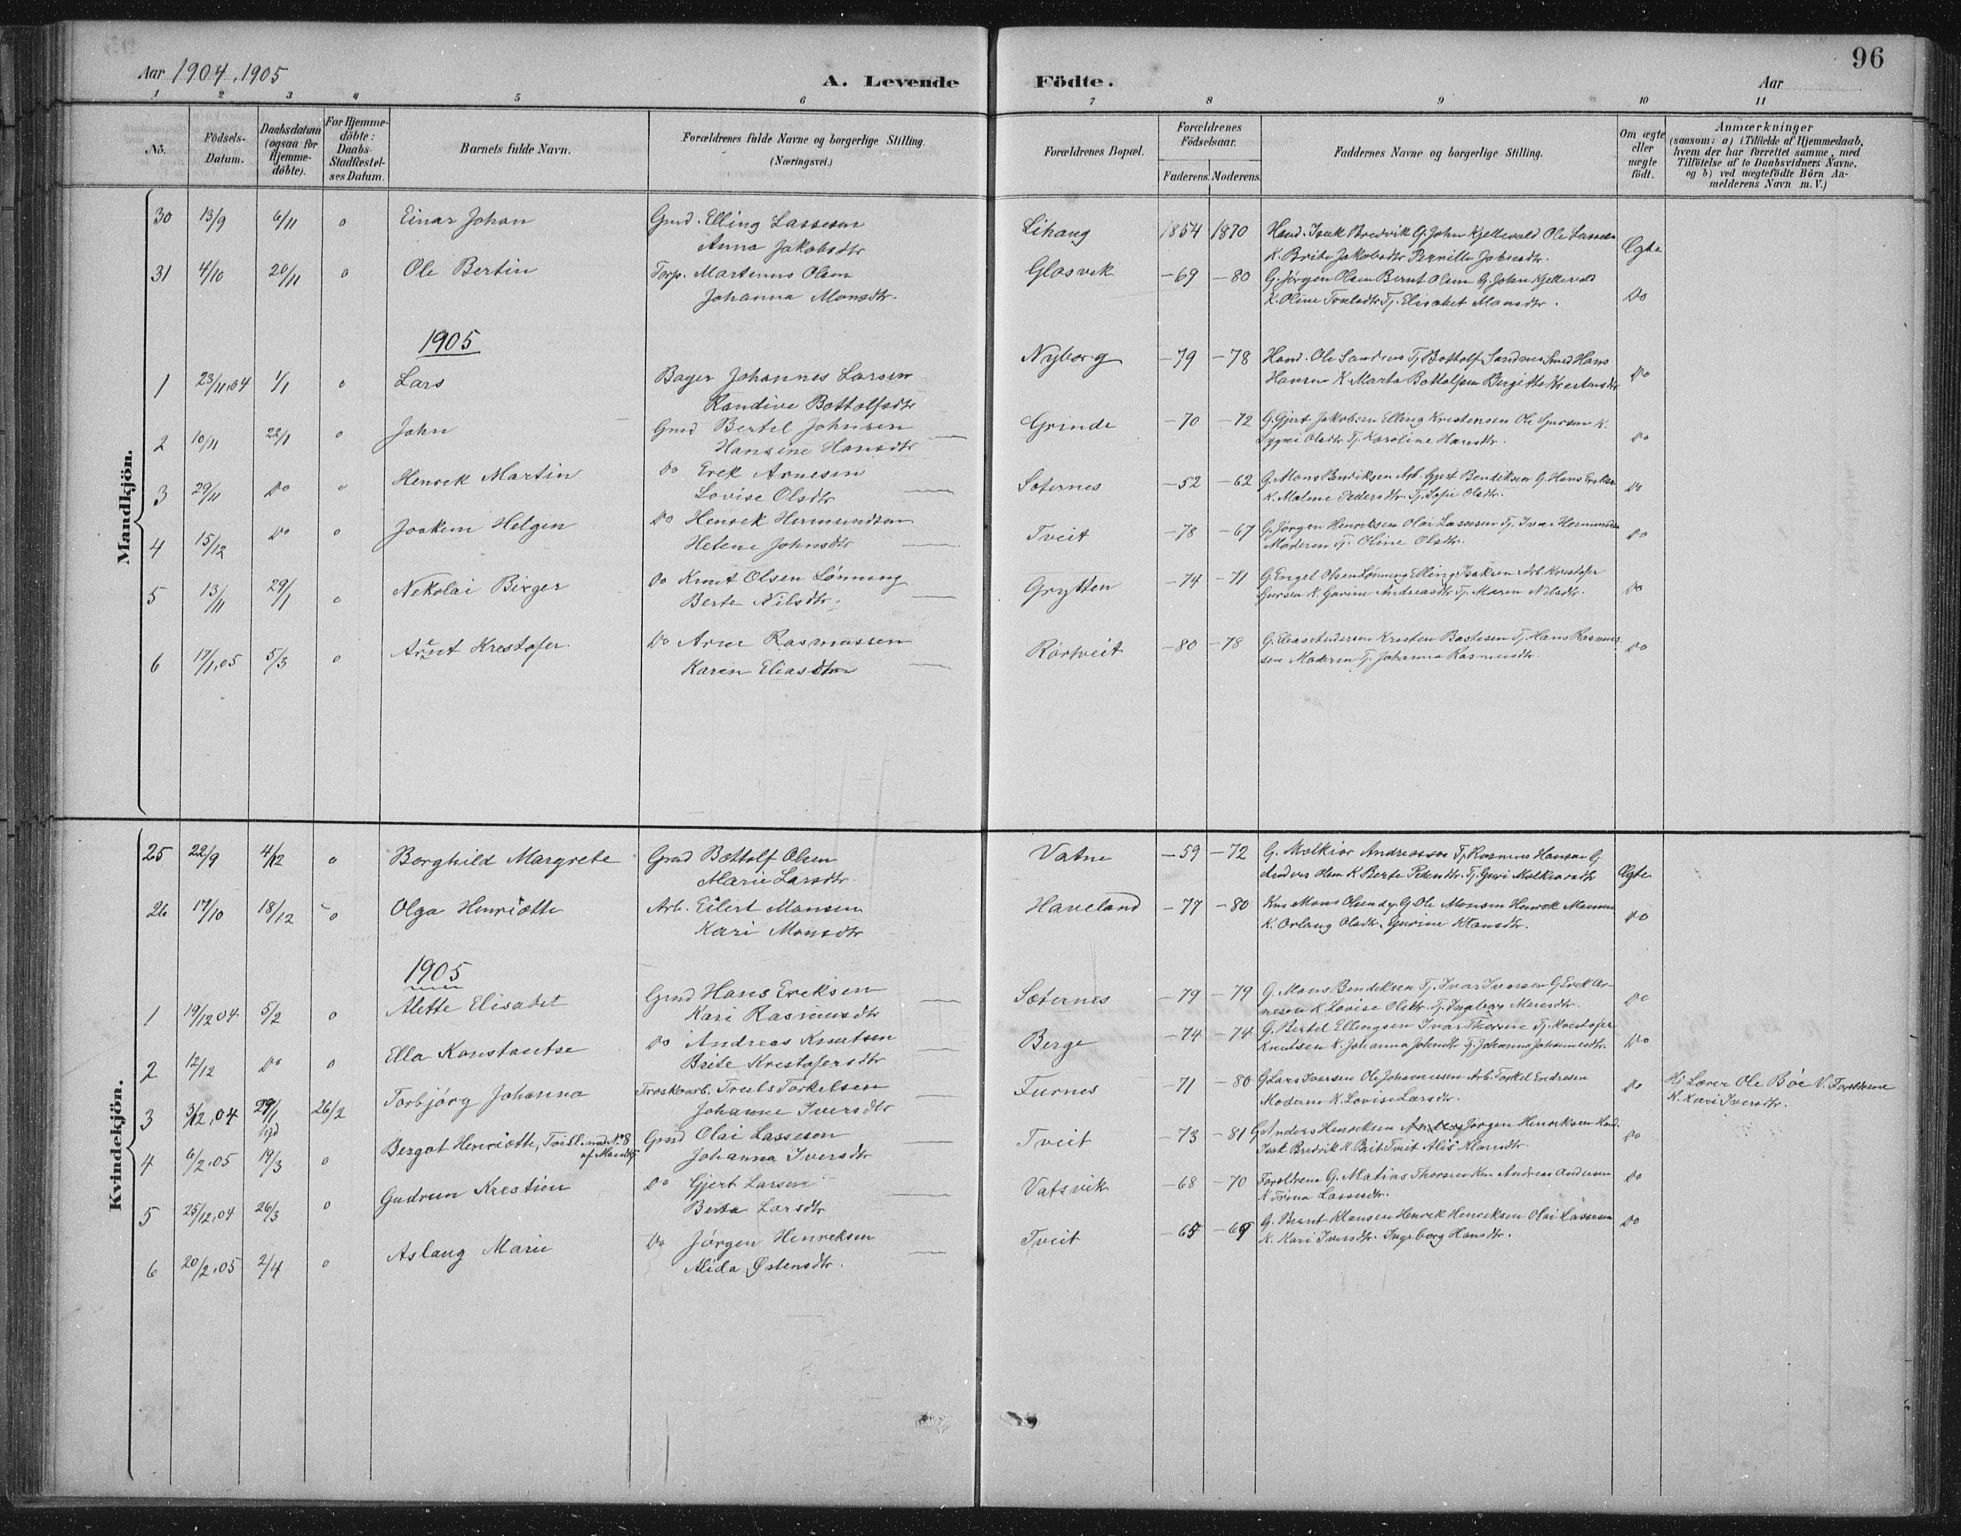 96
Aar 1904, 1905
A. Levende Födte.
Aar
1 2 3 4 5 6 7 8 9 10 11
No. Födsels-Datum. Daabsdatum (ogsaa for Hjemme-döbte). For Hjemme-döbte: Daabs-Stadfæstel-ses Datum. Barnets fulde Navn. Forældrenes fulde Navne og borgerlige Stilling. (Næringsvei.) Forældrenes Bopæl. Forældrenes Födselsaar. Faderens. Moderens. Faddernes Navne og borgerlige Stilling. Om ægte eller uægte födt. Anmærkninger (saasom: a) i Tilfælde af Hjemmedaab, hvem der har forrettet samme, med Tilföielse af to Daabsvidners Navne. og b) ved uægtefödte Börn An-melderens Navn m. V.)
Mandkjön.
30 13/9 6/11 o Einar Johan Gmd. Elling Lassesen Lihaug 1854 1870 Hand. Isak Bredvik G. John Kjellevold Ole Lassesen Ægte
Anna Jakobsdtr K. Brite Jakobsdtr Pernille Johnsdtr.
31 4/10 20/11 o Ole Bertin Torp. Martinus Olsen Glosvik -69 -80 G. Jørgen Olsen Bernt Olsen G. John Kjellevold Do
Johanna Monsdtr. K. Oline Tj. Elisabet Monsdtr.
1905
1 23/11.04 1/1 o Lars Bager Johannes Larsen Nyborg -79 -78 Hand. Ole Sandnes Tj. Bottolf Sandnes Smed Hans Do
Randine Bottolfsdtr Hansen K. Marta Bottolfsen Bergitte
2 10/11 22/1 o John Gmd Bertel Johnsen Grinde -70 -72 G. Gjert Jakobsen Elling Kristensen Ole K. Do
Hansine Hansdtr Olsdtr Tj. Karoline Hansdtr.
3 29/11 Do o Henrek Martin Do Erek Arnesen Sæternes -52 -62 G. Mons Bendiksen Arb. Gjert Bendiksen G. Hans Ereksen Do
Lovise Olsdtr K. Malene Pedersdtr. Tj. Sofie Olsdtr.
4 15/12 Do o Joakim Helgin Do Henrek Hermundsen Tveit -78 -67 G. Jørgen Henreksen Olai Lassesen Tj. Ivar Do
Helene Johnsdtr Moderen Tj. Oline Olsdtr.
5 13/11 29/1 o Nekolai Birger Do Knut Olsen Lønning Grytten -74 -71 G. Engel Olsen Lønning Elling Isaksen Arb. Krestofer Do
Berte Nilsdtr. K. Gurine Andreasdtr Tj. Maren Nilsdtr.
6 17/1.05 5/3 o Arnt Krestofer Do Arne Rasmussen Rörtveit -80 -78 G. Elias Andersen Kresten Tj. Hans Rasmus Do
Karen Eliasdtr sen Moderen Tj. Johanna Rasmusdtr.
Kvindekjön.
25 22/9 4/12 o Borghild Margrete Gmd Bottolf Olsen Vatne -59 -72 G. Melkior Andreassen Tj. Rasmus Hansen G Ægte
Marie Larsdtr. Anders Olsen K Berte Pedersdtr. Tj. Guri Melkiorsdtr
26 17/10 18/12 o Olga Henriette Arb. Eilert Monsen Haveland -77 -80 Mons Olsen G. Ole Monsen Henrek Monsen Do
Kari Monsdtr K. Orlaug Olsdtr. Gurine Hansdtr.
1905
1 19/12 04 5/2 o Alette Elisabet Gmd Hans Ereksen Sæternes -79 -79 G. Mons Bendiksen Tj. Ivar Iversen G. Erek Ar- Do
Kari Rasmusdtr nesen K. Lovise Olsdtr Tj. Ingeborg Monsdtr.
2 12/12 Do o Ella Konstantse Do Andreas Knutsen Berge -74 -74 G. Bertel Ellingsen Ivar Thorsen Tj. Krestofer Do
Brite Krestofersdtr Knutsen K. Johanna Johnsdtr Tj. Johanna Johannesdtr
3 3/12.04 29/1 26/2 Torbjørg Johanna Træskoarb. Truls Torkelsen Turnes -71 -80 G Lars Iversen Ole Johannesen Arb. Torkel Endresen Do Hj Lærer Ole Bøe V. Forældrene
Johanne Iversdtr Moderen K. Lovise Larsdtr. K. Kari Iversdtr.
4 6/2.05 19/3 o Bergot Henriette, Tvill. med No 8 af Mandkj. Gmd Olai Lassesen Tveit -73 -81 G Anders Henreksen Jørgen Henreksen Hand. Do
Johanna Iversdtr Isak Bredvik K. Brit Tveit Alis Hansdtr.
5 25/12.04 26/3 o Gudrun Krestine Do Gjert Larsen Vatsvik -68 -70 Forældrene G. Matias Thorsen Andreas Andersen Do
Berta Larsdtr K Trina Lassesdtr.
6 20/2.05 2/4 o Aslaug Marie Do Jørgen Henreksen Tveit -65 -69 G. Bernt Klausen Henrek Henreksen Olai Lassesen Do
Alida Østensdtr. K. Kari Iversdtr. Ingeborg Hansdtr.